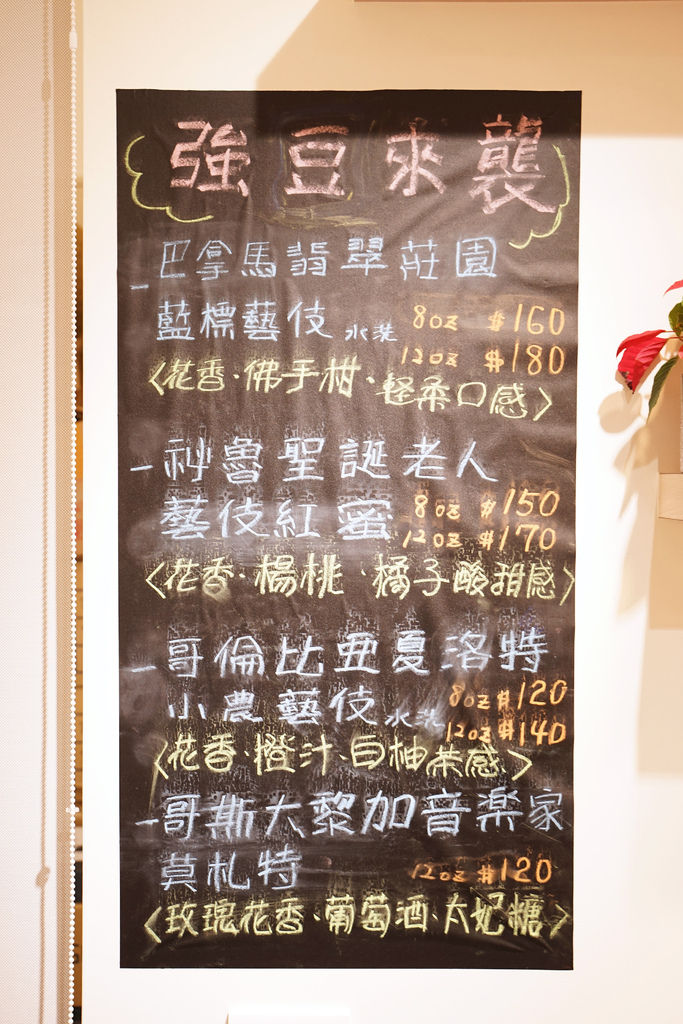 強豆來襲
-巴拿馬翡翠莊園
藍標藝伎 水洗 8oz $160
12oz $180
<花香·佛手柑、軽柔口感>
-祕魯聖誕老人
藝伎紅蜜 8oz $150
12oz $170
<花香·楊桃、橘子酸甜感>
-哥倫比亞夏洛特
小農藝伎 水洗 8oz $120
12oz $140
<花香·橙汁、白柚茶感>
-哥斯大黎加音楽家
莫札特 12oz $120
<玫瑰花香·葡萄酒·太妃糖>